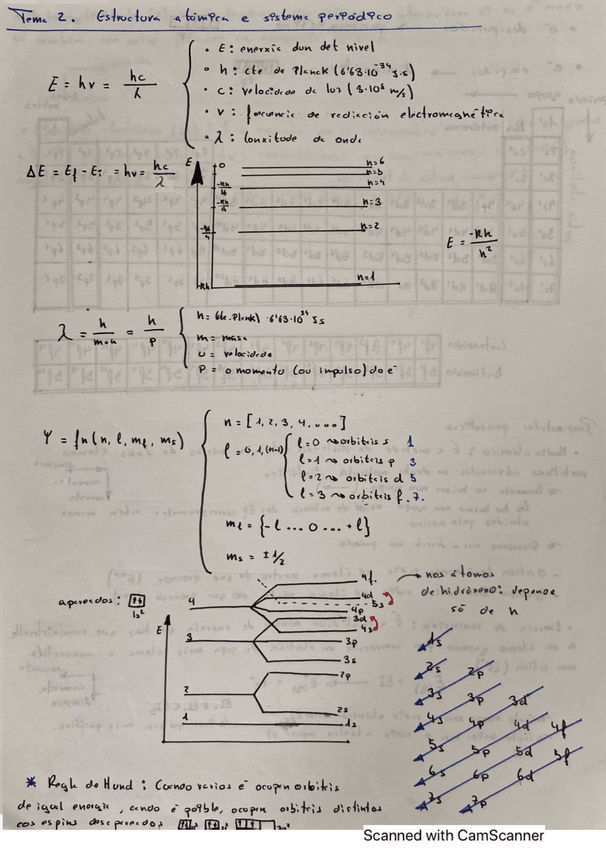 Tema 2. Estructura atómica e sistema periódico
E = hν = hc/λ
• E: enerxía dun det nivel
• h: cte de Planck (6'63·10⁻³⁴ J·s)
• c: velocidade da luz (3·10⁸ m/s)
• ν: frecuencia de radiación electromagnética
• λ: lonxitude de onda
ΔE = Ef - Ei = hν = hc/λ
E
0
n=6
n=5
n=4
n=3
n=2
n=1
-Rh
E = -Rh/n²
λ = h/m·u = h/p
h = Cte. Planck) 6'63·10⁻³⁴ Js
m = masa
u = velocidade
P = o momento (ou impulso) do e⁻
Ψ = fn (n, l, ml, ms)
n = [1, 2, 3, 4, ....]
l = 0, 1, (n-1)
l=0 → orbitais s 1
l=1 → orbitais p 3
l=2 → orbitais d 5
l=3 → orbitais f. 7.
ml = {-l ... 0 ... +l}
ms = ±1/2
apareados: ↑↓
1s²
E
4
3
2
1
4f
4d
5s
4p
3d
4s
3p
3s
2p
2s
1s
→ nos átomos
de hidróxeno: depende
só de n
1s
2s 2p
3s 3p 3d
4s 4p 4d 4f
5s 5p 5d 5f
6s 6p 6d
7s 7p
* Regla de Hund: Cando varios e⁻ ocupen orbitais
de igual enerxía, cando é posible, ocupan orbitais distintos
cos espins desapareados
Scanned with CamScanner